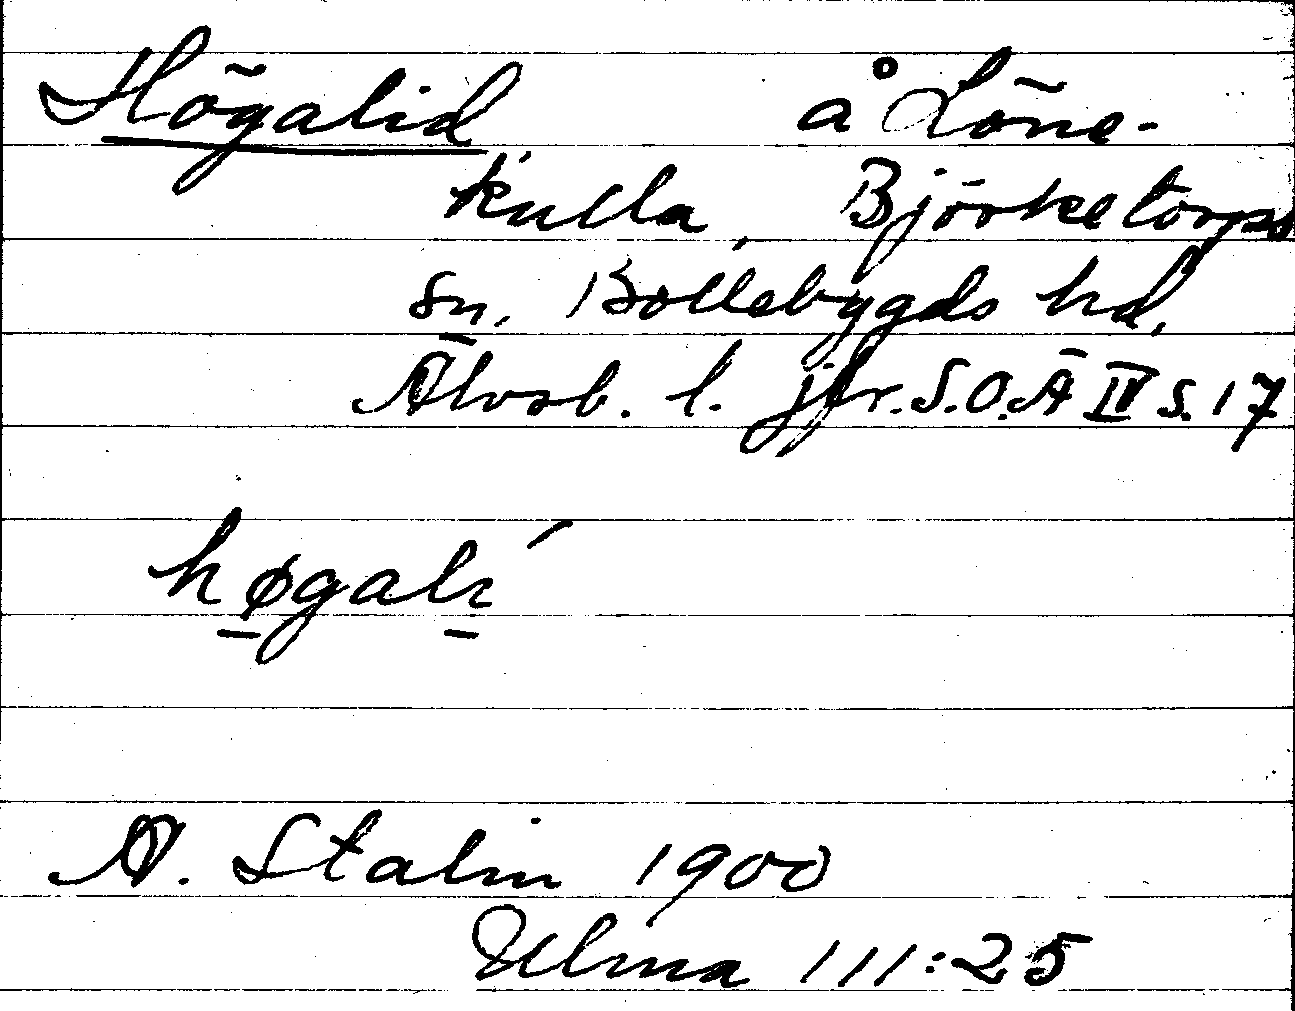 Högalid å Löne-
kulla, Björketorps
sn. Bollebygds hd,
Älvsb. l. jfr. S.O.Ä IV s. 17
høgalí
A. Stalin 1900
Ulma 111:25